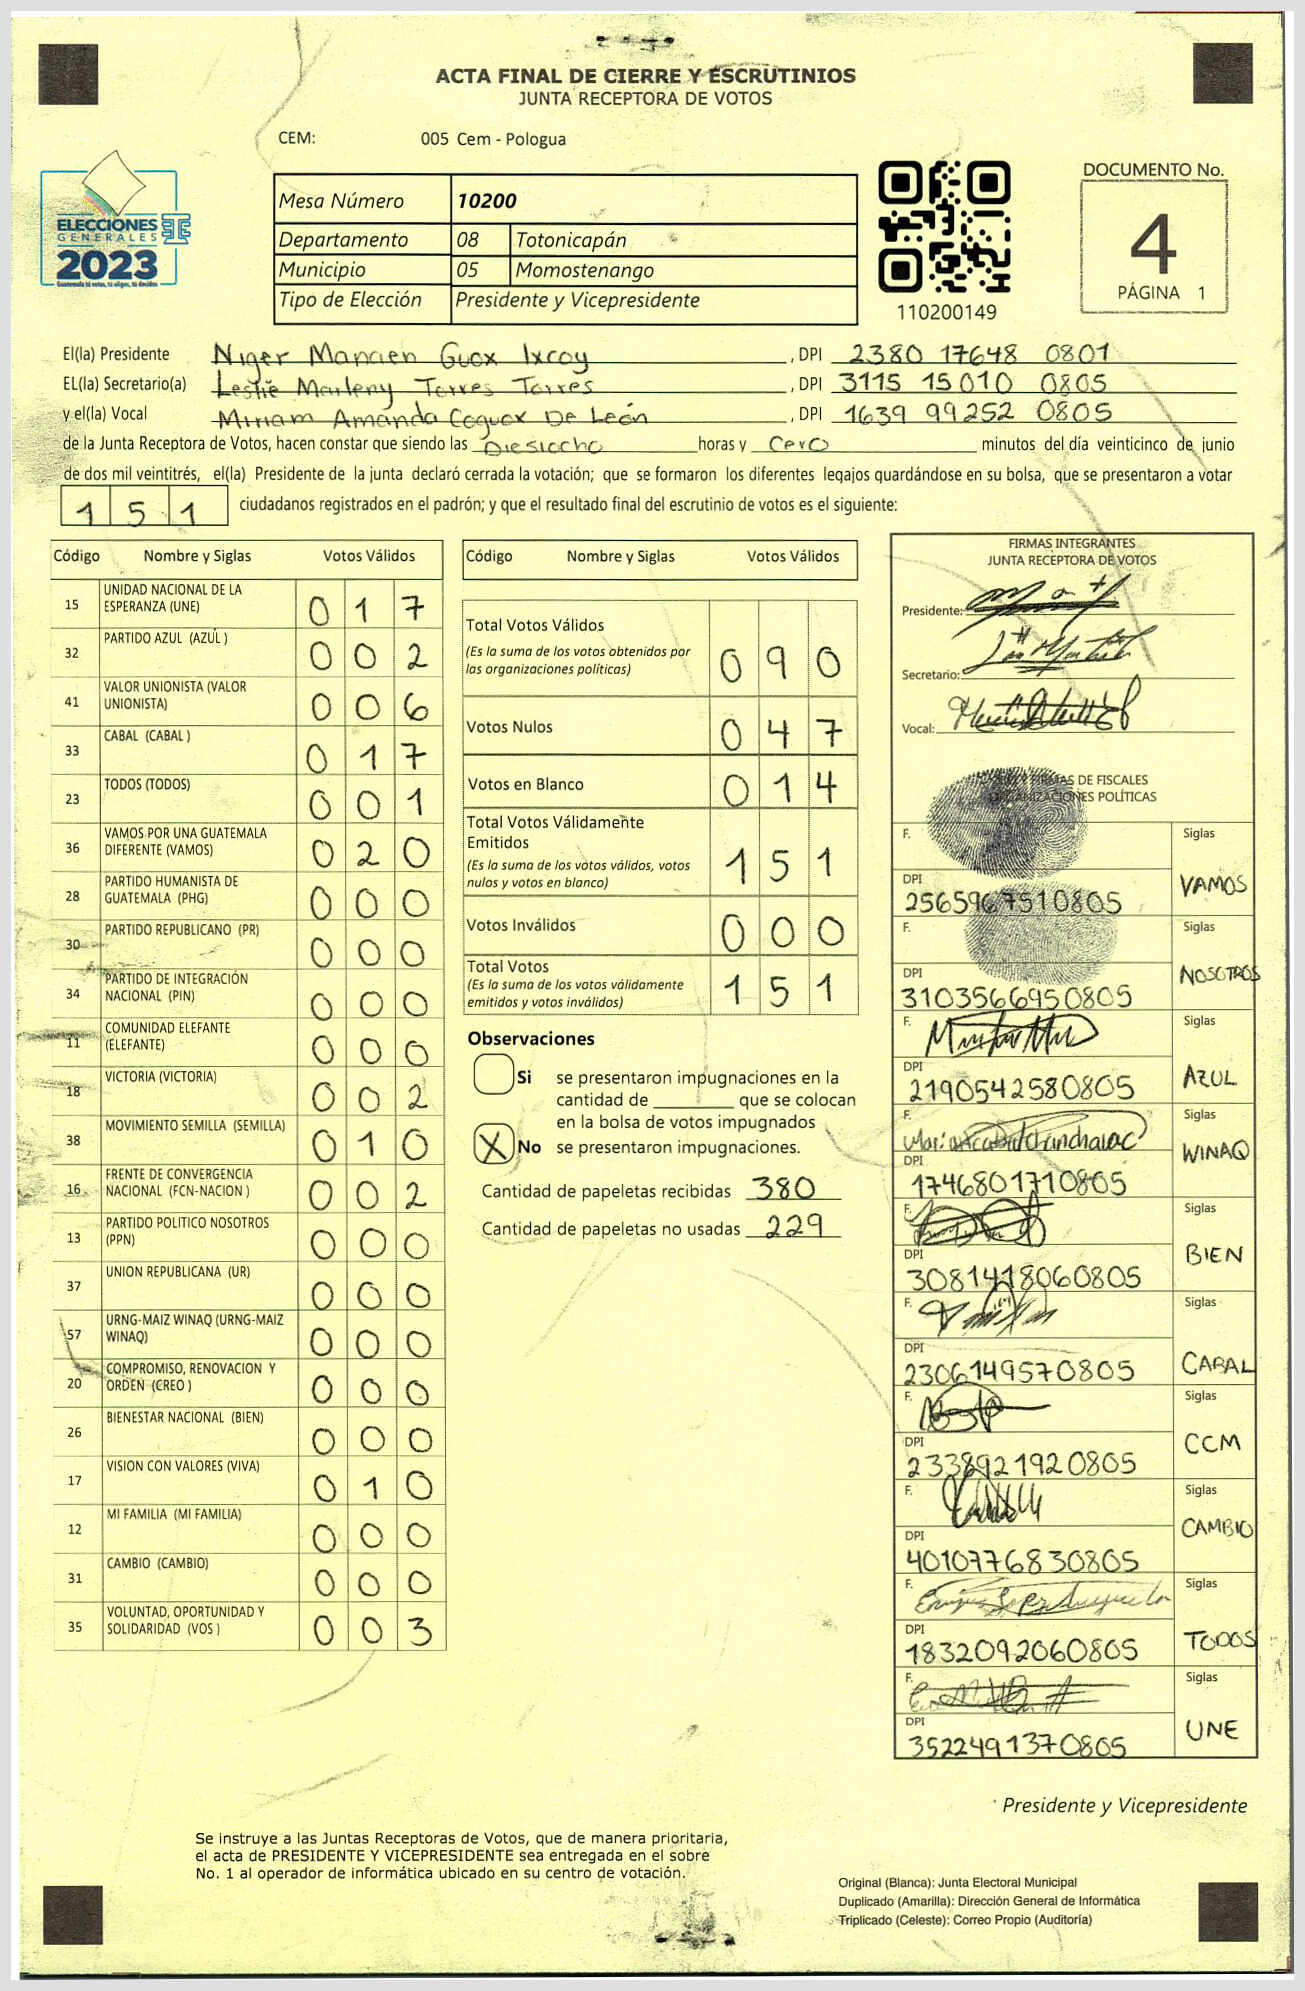 ACTA FINAL DE CIERRE Y ESCRUTINIOS
JUNTA RECEPTORA DE VOTOS
CEM: 005 Cem - Pologua
ELECCIONES
GENERALES
2023
Guatemala tú votas, tú eliges, tú decides
Mesa Número 10200
Departamento 08 Totonicapán
Municipio 05 Momostenango
Tipo de Elección Presidente y Vicepresidente
110200149
DOCUMENTO No.
4
PÁGINA 1
El(la) Presidente Niger Guox Ixcoy , DPI 2380 17648 0801
EL(la) Secretario(a) Leslie Marleny Torres Torres , DPI 3115 15010 0805
y el(la) Vocal Miriam Amanda Coguox De León , DPI 1639 99252 0805
de la Junta Receptora de Votos, hacen constar que siendo las Diesiocho horas y cero minutos del día veinticinco de junio
de dos mil veintitrés, el(la) Presidente de la junta declaró cerrada la votación; que se formaron los diferentes legajos guardándose en su bolsa, que se presentaron a votar
1 5 1 ciudadanos registrados en el padrón; y que el resultado final del escrutinio de votos es el siguiente:
Código Nombre y Siglas Votos Válidos
15 UNIDAD NACIONAL DE LA ESPERANZA (UNE) 0 1 7
32 PARTIDO AZUL (AZUL ) 0 0 2
41 VALOR UNIONISTA (VALOR UNIONISTA) 0 0 6
33 CABAL (CABAL ) 0 1 7
23 TODOS (TODOS) 0 0 1
36 VAMOS POR UNA GUATEMALA DIFERENTE (VAMOS) 0 2 0
28 PARTIDO HUMANISTA DE GUATEMALA (PHG) 0 0 0
30 PARTIDO REPUBLICANO (PR) 0 0 0
34 PARTIDO DE INTEGRACIÓN NACIONAL (PIN) 0 0 0
11 COMUNIDAD ELEFANTE (ELEFANTE) 0 0 0
18 VICTORIA (VICTORIA) 0 0 2
38 MOVIMIENTO SEMILLA (SEMILLA) 0 1 0
16 FRENTE DE CONVERGENCIA NACIONAL (FCN-NACION ) 0 0 2
13 PARTIDO POLITICO NOSOTROS (PPN) 0 0 0
37 UNION REPUBLICANA (UR) 0 0 0
57 URNG-MAIZ WINAQ (URNG-MAIZ WINAQ) 0 0 0
20 COMPROMISO, RENOVACION Y ORDEN (CREO ) 0 0 0
26 BIENESTAR NACIONAL (BIEN) 0 0 0
17 VISION CON VALORES (VIVA) 0 1 0
12 MI FAMILIA (MI FAMILIA) 0 0 0
31 CAMBIO (CAMBIO) 0 0 0
35 VOLUNTAD, OPORTUNIDAD Y SOLIDARIDAD (VOS ) 0 0 3
Código Nombre y Siglas Votos Válidos
Total Votos Válidos 0 9 0
(Es la suma de los votos obtenidos por
las organizaciones políticas)
Votos Nulos 0 4 7
Votos en Blanco 0 1 4
Total Votos Válidamente
Emitidos 1 5 1
(Es la suma de los votos válidos, votos
nulos y votos en blanco)
Votos Inválidos 0 0 0
Total Votos 1 5 1
(Es la suma de los votos válidamente
emitidos y votos inválidos)
Observaciones
Si se presentaron impugnaciones en la
cantidad de ________ que se colocan
en la bolsa de votos impugnados
X No se presentaron impugnaciones.
Cantidad de papeletas recibidas 380
Cantidad de papeletas no usadas 229
FIRMAS INTEGRANTES
JUNTA RECEPTORA DE VOTOS
Presidente:
Secretario:
Vocal:
FIRMAS DE FISCALES
ORGANIZACIONES POLÍTICAS
F. Siglas
DPI VAMOS
2565967510805
F. Siglas
DPI NOSOTROS
3103566950805
F. Siglas
DPI AZUL
2190542580805
F. Siglas
DPI WINAQ
1746801710805
F. Siglas
DPI BIEN
3081418060805
F. Siglas
DPI CABAL
2306149570805
F. Siglas
DPI CCM
2338921920805
F. Siglas
DPI CAMBIO
4010776830805
F. Siglas
DPI TODOS
1832092060805
F. Siglas
DPI UNE
3522491370805
Presidente y Vicepresidente
Se instruye a las Juntas Receptoras de Votos, que de manera prioritaria,
el acta de PRESIDENTE Y VICEPRESIDENTE sea entregada en el sobre
No. 1 al operador de informática ubicado en su centro de votación.
Original (Blanca): Junta Electoral Municipal
Duplicado (Amarilla): Dirección General de Informática
Triplicado (Celeste): Correo Propio (Auditoría)